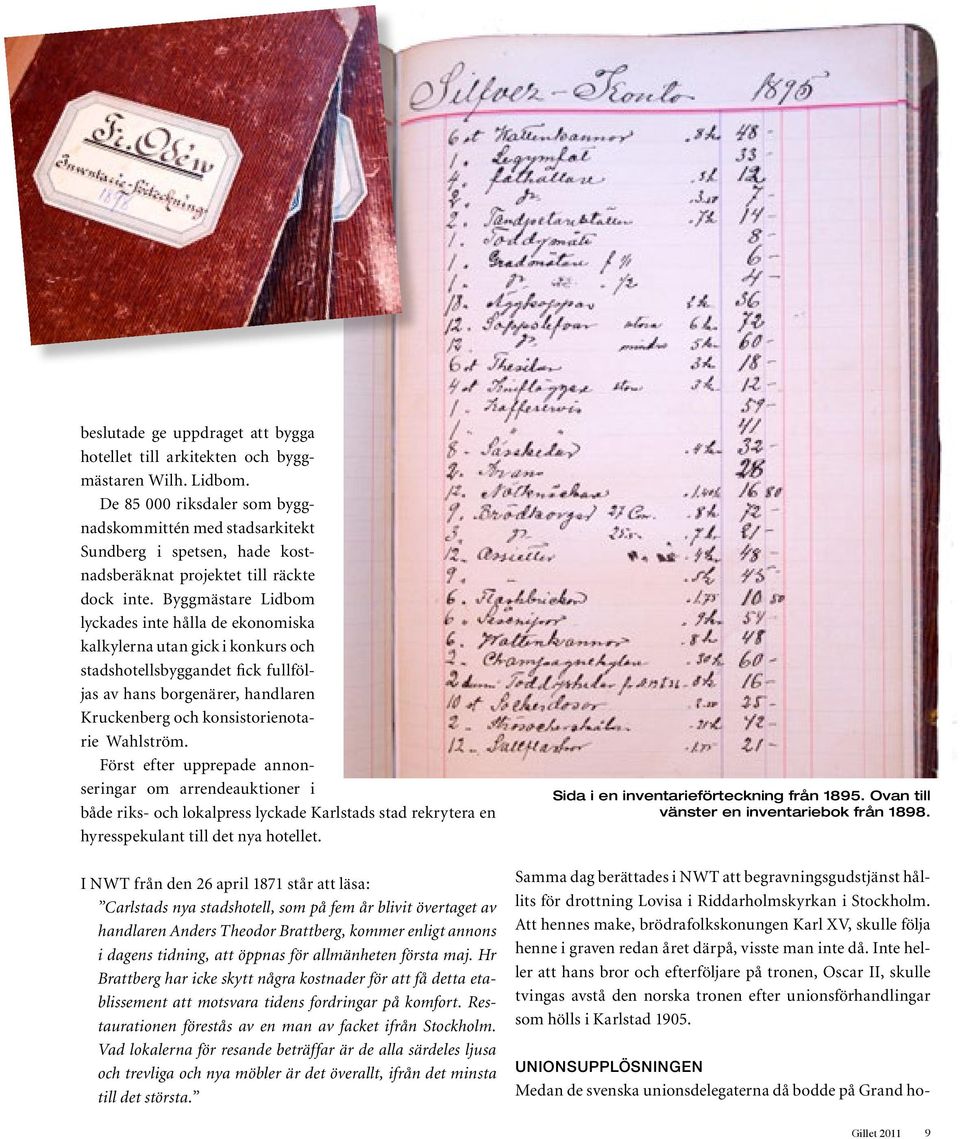 Fr. Odéw
Inventarie-förteckning
1898
Silfver-Konto 1895
6 st Wattenkannor . 8 kr 48 -
1. Legymfat 33 -
4. fathållare . 3 k 12
2. Dr . 3.50 7 -
2. Tandpetareställen . 7 k 14 -
1. Toddymått 8 -
1. Gradmätare f 1/1 6 -
1. Dr . 1/2 4 -
18. Äggkoppar 2 k 36
12. Soppslefvar stora 6 kr 72
12. Dr mindre 5 kr 60 -
6 st Thesilar 3 k 18 -
4 st Kniflägger 3 k 12 -
1. Kaffeservis 59 -
1. " " 41
8 - Såsskedar . 4 k 32 -
2. 28
12. Nötknäckare . 1.40 16 80
9. Brödkorger 27 Cm. . 8 k 72 -
3. Dr 25 . 7 kr 21 -
12. Assietter . 4 k 48 -
9. . 5 k 45 -
6. Flaskbrickor . 1.75 10 50
6. . 9 k 54 -
6. Wattenkannor . 8 k 48
2. Champagnekylare . 30 k 60 -
2 Toddyskedar . 8 k 16 -
10 st Sockerdosor . 2.50 25 -
2 - Strösockerskålar . 21 k 42 -
12 - Saltflaskor . 1.75 21 -
beslutade ge uppdraget att bygga
hotellet till arkitekten och bygg-
mästaren Wilh. Lidbom.
De 85 000 riksdaler som bygg-
nadskommittén med stadsarkitekt
Sundberg i spetsen, hade kost-
nadsberäknat projektet till räckte
dock inte. Byggmästare Lidbom
lyckades inte hålla de ekonomiska
kalkylerna utan gick i konkurs och
stadshotellsbyggandet fick fullföl-
jas av hans borgenärer, handlaren
Kruckenberg och konsistorienota-
rie Wahlström.
Först efter upprepade annon-
seringar om arrendeauktioner i
både riks- och lokalpress lyckade Karlstads stad rekrytera en
hyresspekulant till det nya hotellet.
Sida i en inventarieförteckning från 1895. Ovan till
vänster en inventariebok från 1898.
I NWT från den 26 april 1871 står att läsa:
”Carlstads nya stadshotell, som på fem år blivit övertaget av
handlaren Anders Theodor Brattberg, kommer enligt annons
i dagens tidning, att öppnas för allmänheten första maj. Hr
Brattberg har icke skytt några kostnader för att få detta eta-
blissement att motsvara tidens fordringar på komfort. Res-
taurationen förestås av en man av facket ifrån Stockholm.
Vad lokalerna för resande beträffar är de alla särdeles ljusa
och trevliga och nya möbler är det överallt, ifrån det minsta
till det största.”
Samma dag berättades i NWT att begravningsgudstjänst hål-
lits för drottning Lovisa i Riddarholmskyrkan i Stockholm.
Att hennes make, brödrafolkskonungen Karl XV, skulle följa
henne i graven redan året därpå, visste man inte då. Inte hel-
ler att hans bror och efterföljare på tronen, Oscar II, skulle
tvingas avstå den norska tronen efter unionsförhandlingar
som hölls i Karlstad 1905.
UNIONSUPPLÖSNINGEN
Medan de svenska unionsdelegaterna då bodde på Grand ho-
Gillet 2011 9